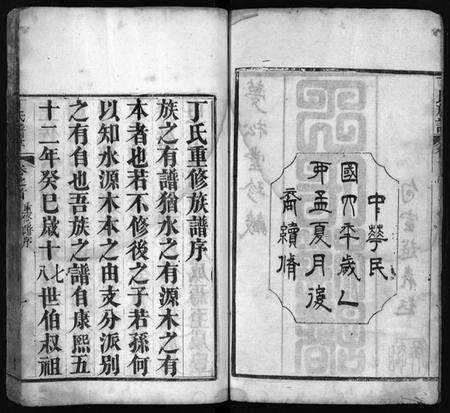 中華民
國四年歲乙
卯孟夏月後
裔續修
丁氏重修族譜序
族之有譜猶水之有源木之有
本者也若不修後之子若孫何
以知水源木本之由支分派別
之有自也吾族之譜自康熙五
十二年癸巳歲十七八世伯叔祖